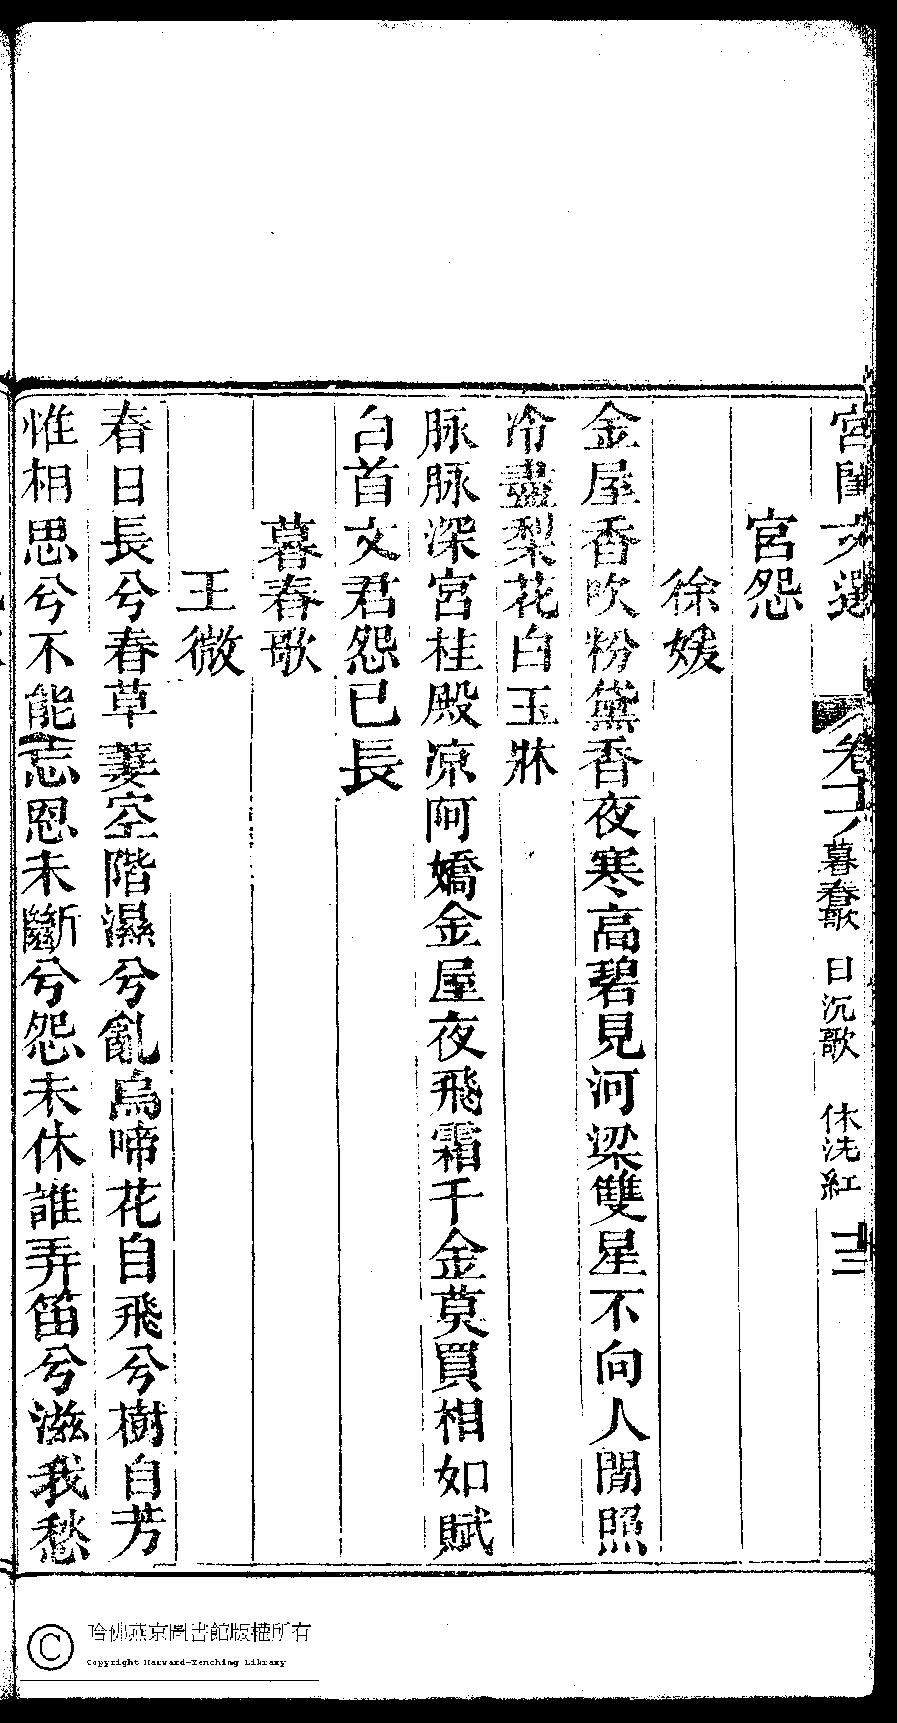 宮閨文選
卷十八 暮春歌 日沉歌 休洗紅 十三
宮怨
徐媛
金屋香吹粉黛香夜寒高碧見河梁雙星不向人閒照
冷盡梨花白玉牀
脉脉深宮桂殿凉阿嬌金屋夜飛霜千金莫買相如賦
白首文君怨已長
暮春歌
王微
春日長兮春草萋空階濕兮亂烏啼花自飛兮樹自芳
惟相思兮不能忘恩未斷兮怨未休誰弄笛兮滋我愁
哈佛燕京圖書館版權所有
Copyright Harvard-Yenching Library